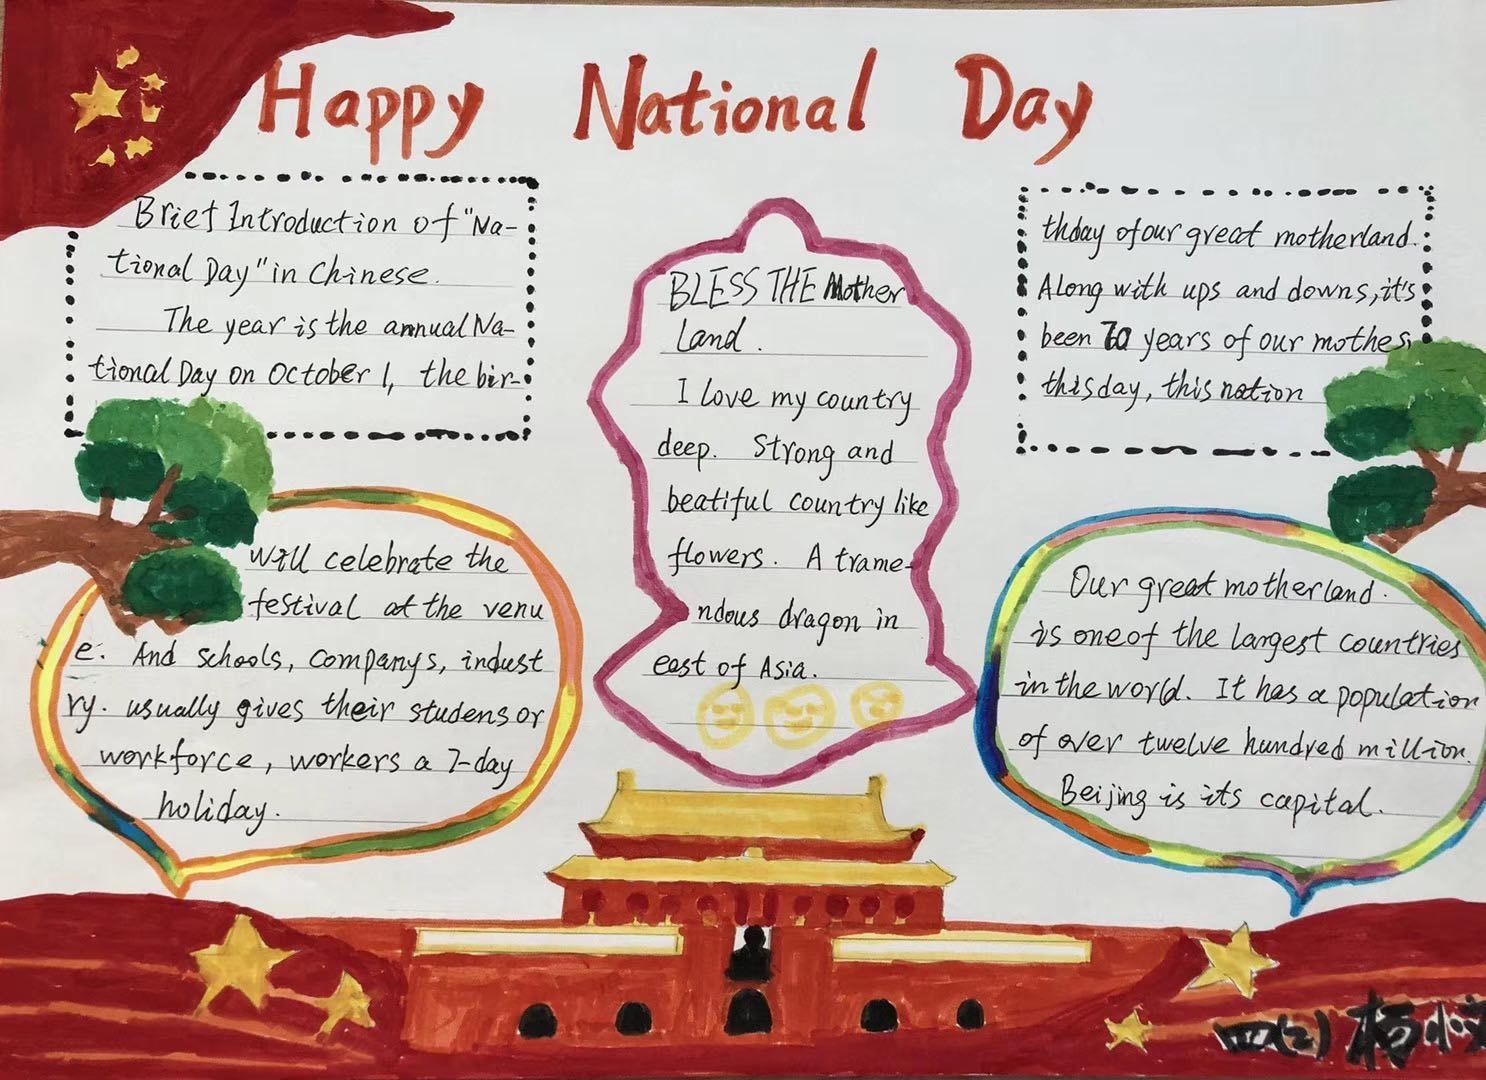 Happy National Day
Brief Introduction of "Na-
tional Day" in Chinese.
The year is the annual Na-
tional Day on October 1, the bir-
thday of our great motherland.
Along with ups and downs, it's
been 70 years of our mothes,
this day, this nation
will celebrate the
festival at the venu
e. And schools, companys, indust
ry. usually gives their studens or
workforce, workers a 7-day
holiday.
BLESS THE Mother
Land.
I love my country
deep. Strong and
beatiful country like
flowers. A trame-
ndous dragon in
east of Asia.
Our great motherland.
is one of the largest countries
in the world. It has a population
of over twelve hundred million.
Beijing is its capital.
四(2) 杨小文